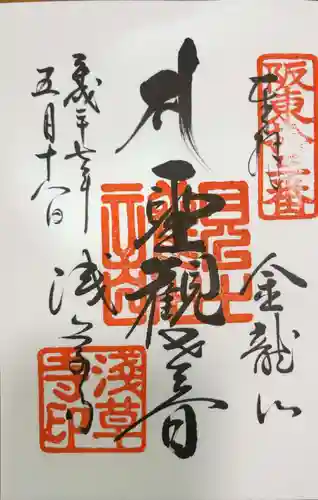 奉拝
金龍山
聖観世音
浅草寺
平成二十七年
五月十八日
阪東十三番
浅草寺印